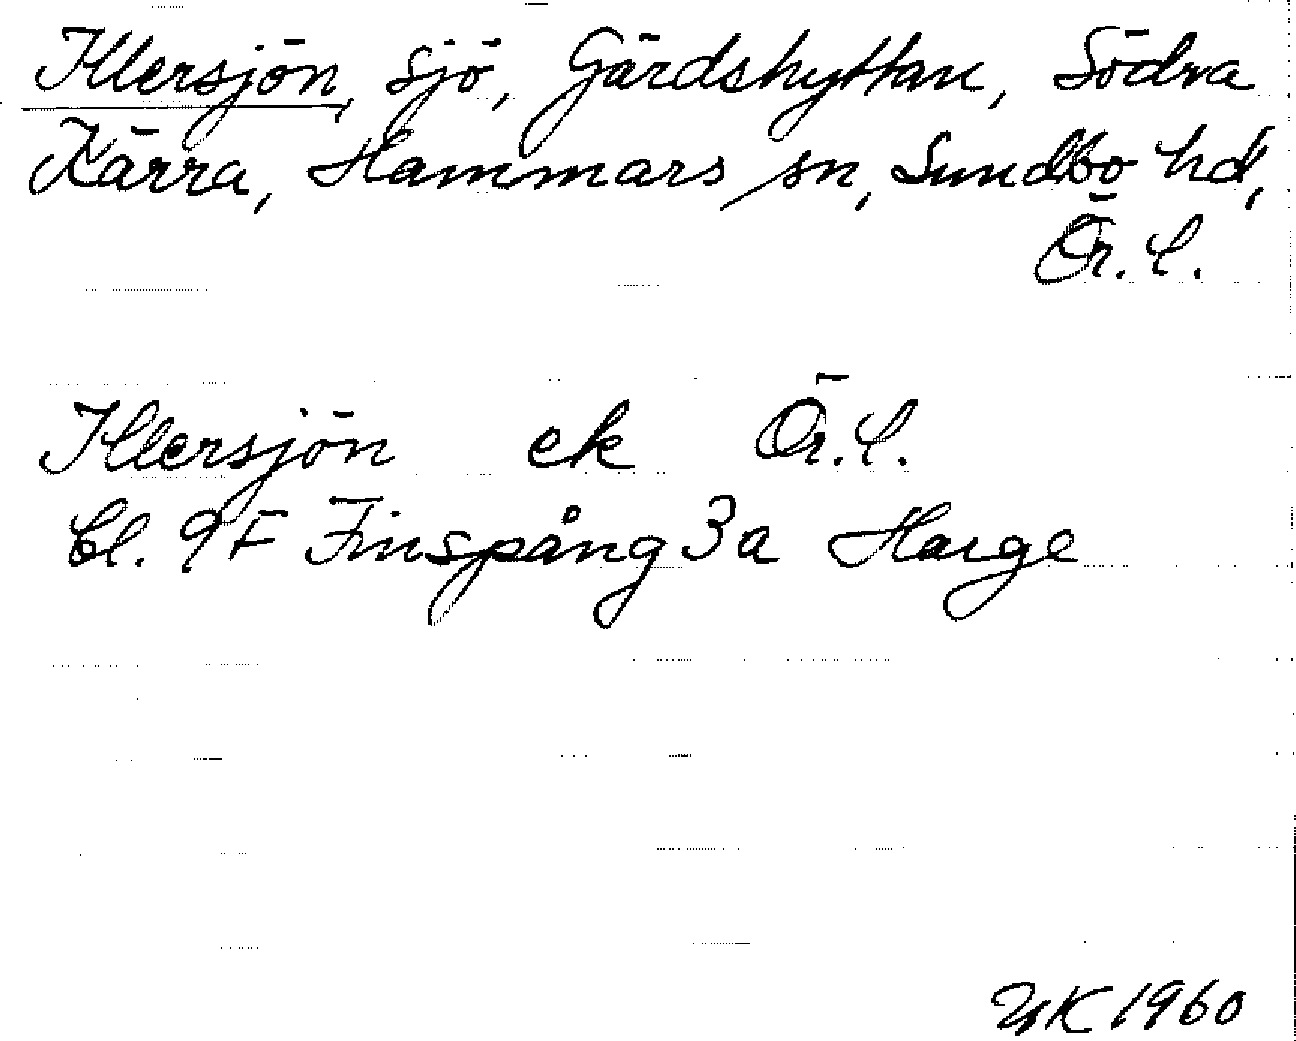 Illersjön, sjö, Gärdshyttan, Södra
Kärra, Hammars sn, Sundbo hd,
Ör. l.
Illersjön ek Ör. l.
bl. 9F Finspång 3a Harge
YK 1960